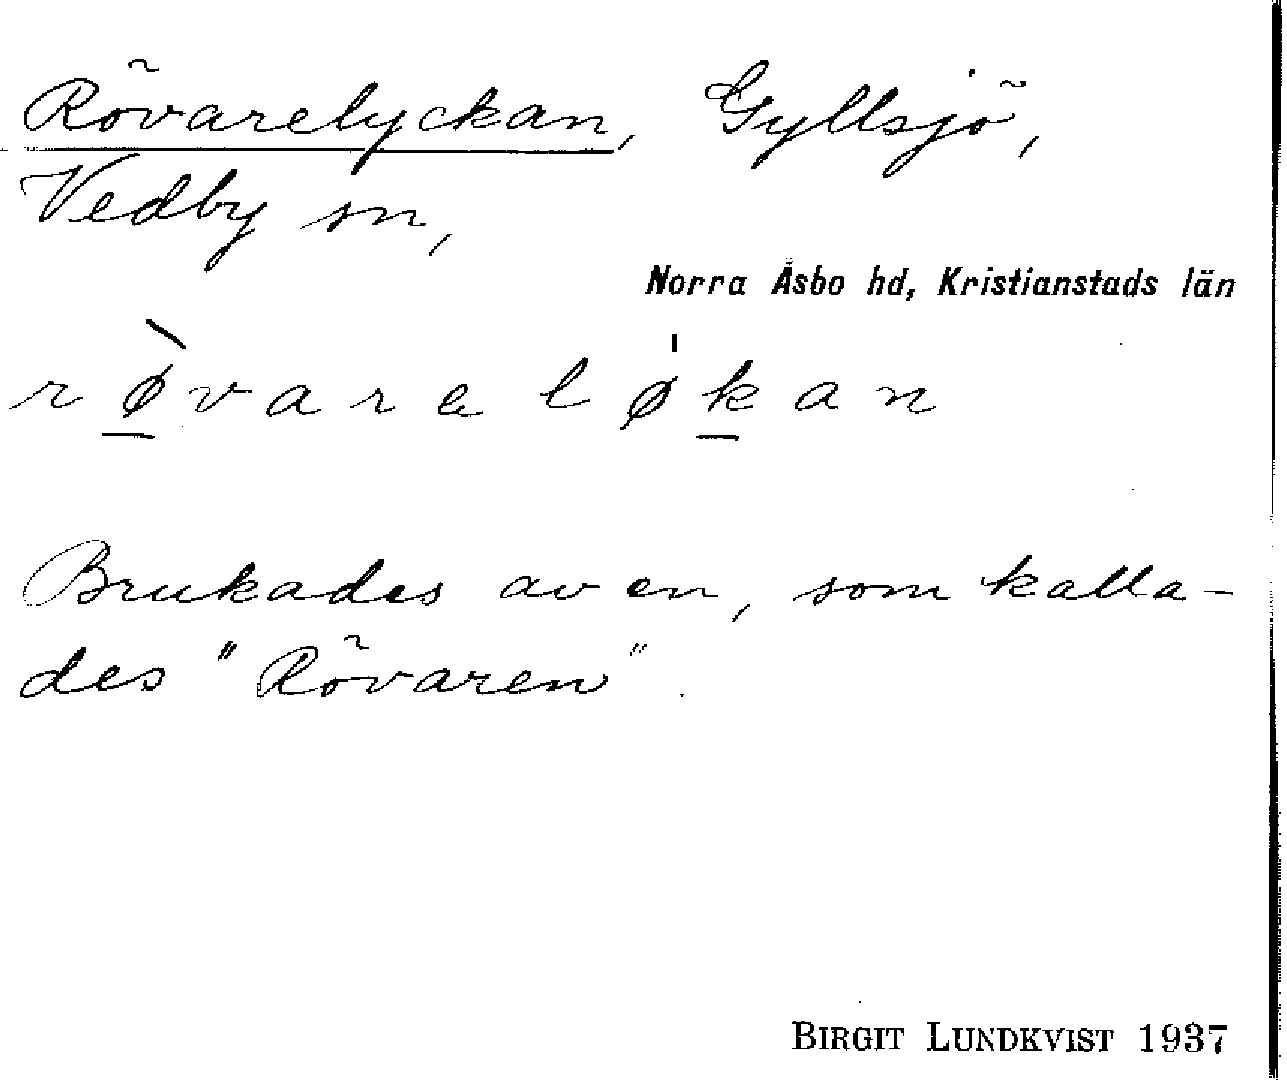 Rövarelyckan, Gyllsjö,
Vedby sn,
Norra Åsbo hd, Kristianstads län
rø̀varelǿkan
Brukades av en, som kalla-
des "Rövaren".
BIRGIT LUNDKVIST 1937